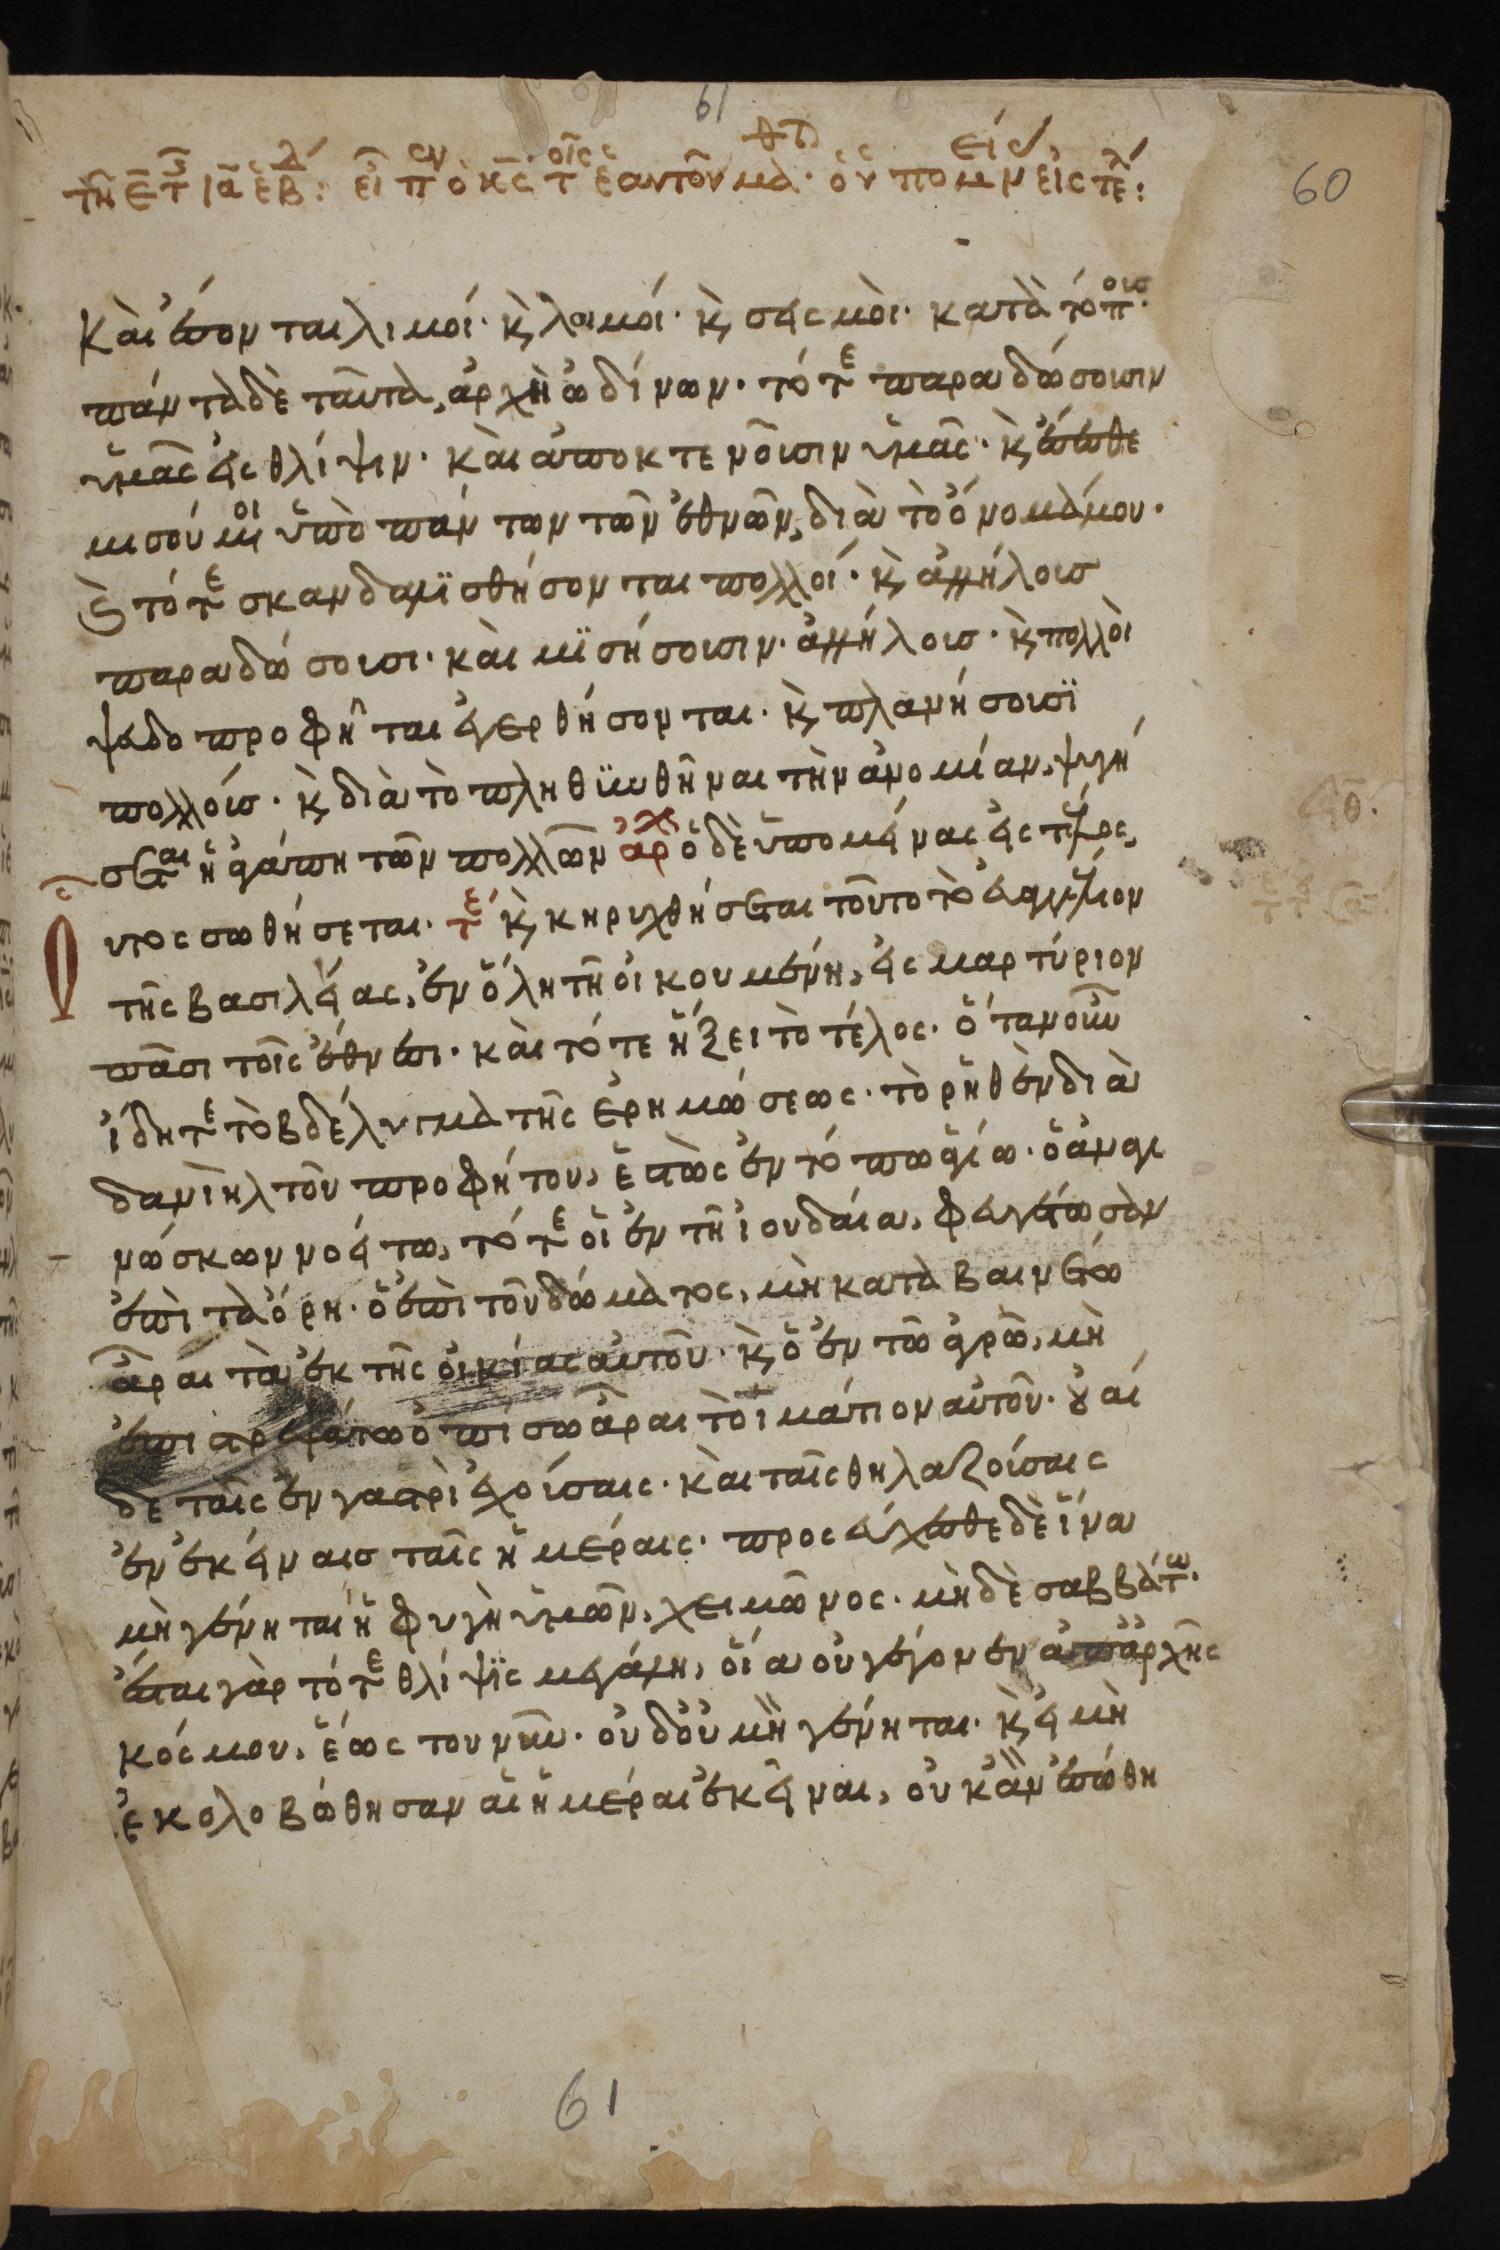 61
60
Καὶ ἔσονται λιμοί· κ λοιμοί· κ σεισμοὶ· κατὰ τόπ οισ·
πάντα δὲ ταῦτα, ἀρχὴ ὠδίνων· τότ ε παραδώσουσιν
ὑμᾶς εἰς θλίψιν· καὶ ἀποκτενοῦσιν ὑμᾶς· κ ἔσεσθε
μισούμ οι ὑπὸ πάντων τῶν ἐθνῶν, διὰ τὸ ὄνομά μου·
κ τότ ε σκανδαλϊσθήσονται πολλοί· κ ἀλλήλοισ
παραδώσουσι· καὶ μϊσήσουσιν· ἀλλήλουσ· κ πολλοὶ
ψευδοπροφῆται ἐγερθήσονται· κ πλανήσουσϊ
πολλούσ· κ διὰ τὸ πληθϋνθῆναι τὴν ἀνομίαν, ψυγή
σετ αι ἡ ἀγάπη τῶν πολλῶν ἀρχ ὁ δὲ ὑπομείνας εἰς τέλος,
οὗτος σωθήσεται· τ ε κ κηρυχθήσεται τοῦτο τὸ εὐαγγέλιον
τῆς βασιλείας, ἐν ὅλη τῆ οἰκουμένη, εἰς μαρτύριον
πᾶσι τοῖς ἔθνεσι· καὶ τότε ἥξει τὸ τέλος· ὅταν οὖν
ἴδητ ε τὸ βδέλυγμα τῆς ἐρημώσεως· τὸ ρηθὲν διὰ
δανιὴλ τοῦ προφήτου, ἑστὼς ἐν τόπω ἁγίω· ὁ ἀναγι
νώσκων νοείτω, τότ ε οἱ ἐν τῆ ἰουδαία, φευγέτωσαν
ἐπὶ τὰ ὄρη· ὁ ἐπὶ τοῦ δώματος, μὴ καταβαινέτω
ἆραι τὰ ἐκ τῆς οἰκίας αὐτοῦ· κ ὁ ἐν τῶ ἀγρῶ, μὴ
ἐπιστρεψάτω ὀπίσω ἆραι τὸ ἱμάτιον αὐτοῦ· οὐαί
δὲ ταῖς ἐν γαστρὶ ἐχούσαις· καὶ ταῖς θηλαζούσαις
ἐν ἐκείναισ ταῖς ἡμέραις· προσεύχεσθε δὲ ἵνα
μὴ γένηται ἡ φυγὴ ὑμῶν, χειμῶνος· μὴ δὲ σαββάτ ω·
ἔσται γὰρ τότ ε θλίψϊς μεγάλη, οἵα οὐ γέγονεν ἀπ' ἀρχῆς
κόσμου, ἕως του νῦν· οὐδ' οὐ μὴ γένηται· κ εἰ μὴ
ἐκολοβώθησαν αἱ ἡμέραι ἐκεῖναι, οὐκ ἂν ἐσώθη
61